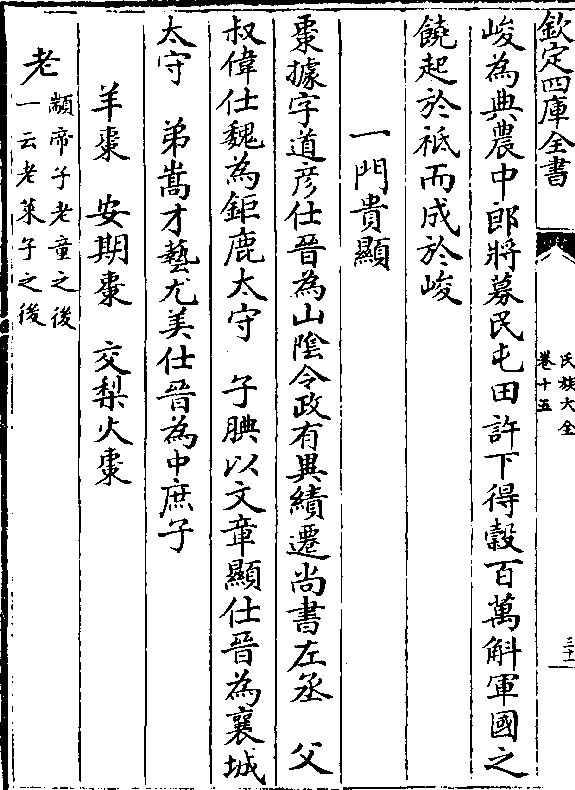 欽定四庫全書
氏族大全
卷十五
三十一
峻為典農中郎將募民屯田許下得榖百萬斛軍國之
饒起於祗而成於峻
一門貴顯
棗據字道彦仕晉為山陰令政有異績遷尚書左丞　父
叔偉仕魏為鉅鹿太守　子腆以文章顯仕晉為襄城
太守　弟嵩才藝尤美仕晉為中庶子
羊棗　安期棗　交梨火棗
老
顓帝子老童之後
一云老萊子之後